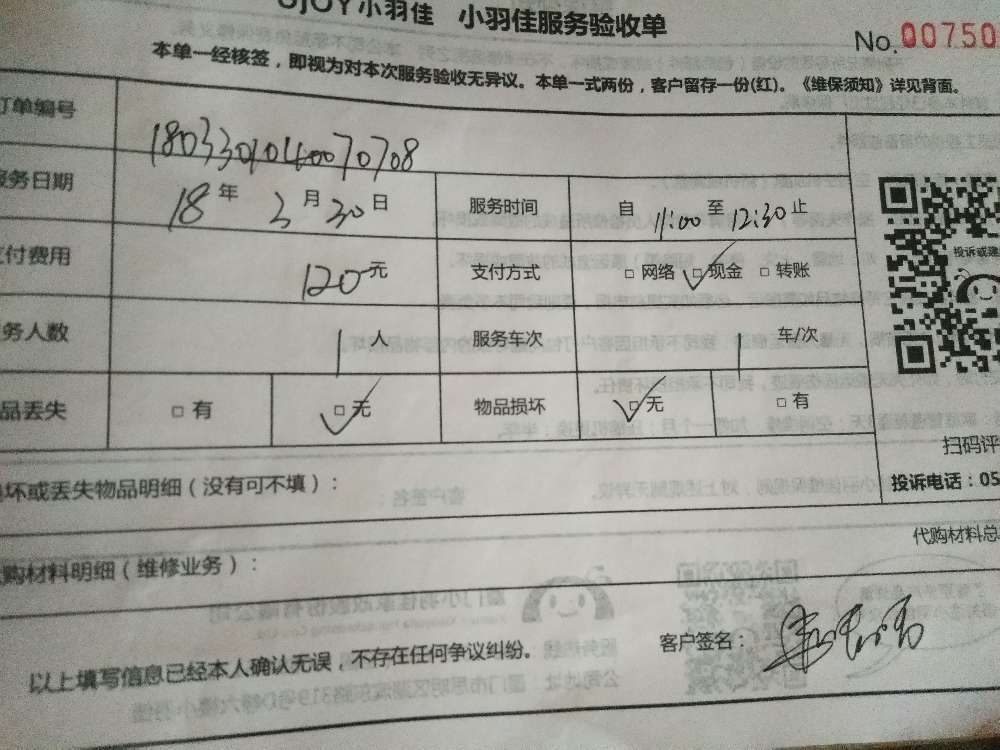 UJOY小羽佳 小羽佳服务验收单
No. 00750
本单一经核签，即视为对本次服务验收无异议。本单一式两份，客户留存一份(红)。《维保须知》详见背面。
订单编号 1803301040070708
服务日期 18年 3月30日 服务时间 自 11:00 至 12:30 止
支付费用 120元 支付方式 □网络 □现金 □转账
务人数 1人 服务车次 1 车/次
品丢失 □有 □无 物品损坏 □无 □有
投诉或建
扫码评
投诉电话：05
坏或丢失物品明细（没有可不填）：
代购材料总
购材料明细（维修业务）：
客户签名：
以上填写信息已经本人确认无误，不存在任何争议纠纷。